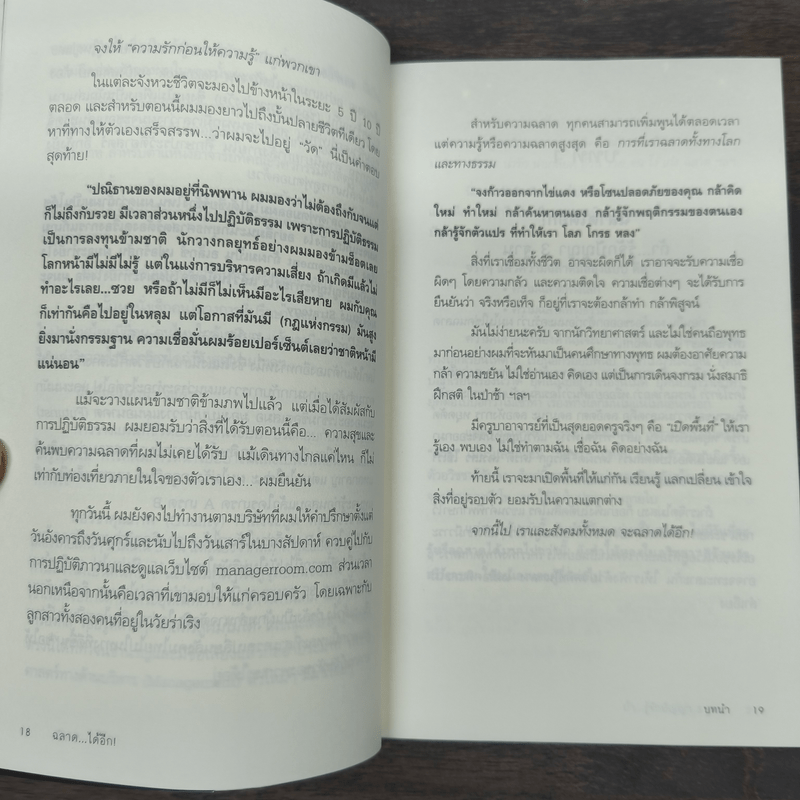 จงให้ "ความรักก่อนให้ความรู้" แก่พวกเขา
ในแต่ละจังหวะชีวิตจะมองไปข้างหน้าในระยะ 5 ปี 10 ปี
ตลอด และสำหรับตอนนี้ผมมองยาวไปถึงบั้นปลายชีวิตทีเดียว โดย
หาที่ทางให้ตัวเองเสร็จสรรพ...ว่าผมจะไปอยู่ "วัด" นี่เป็นคำตอบ
สุดท้าย!
"ปณิธานของผมอยู่ที่นิพพาน ผมมองว่าไม่ต้องถึงกับจนแต่
ก็ไม่ถึงกับรวย มีเวลาส่วนหนึ่งไปปฏิบัติธรรม เพราะการปฏิบัติธรรม
เป็นการลงทุนข้ามชาติ นักวางกลยุทธ์อย่างผมมองข้ามช็อตเลย
โลกหน้ามีไม่มีไม่รู้ แต่ในแง่การบริหารความเสี่ยง ถ้าเกิดมีแล้วไม่
ทำอะไรเลย...ซวย หรือถ้าไม่มีก็ไม่เห็นมีอะไรเสียหาย ผมกับคุณ
ก็เท่ากันคือไปอยู่ในหลุม แต่โอกาสที่มันมี (กฎแห่งกรรม) มันสูง
ยิ่งมานั่งกรรมฐาน ความเชื่อมั่นผมร้อยเปอร์เซ็นต์เลยว่าชาติหน้ามี
แน่นอน"
แม้จะวางแผนข้ามชาติข้ามภพไปแล้ว แต่เมื่อได้สัมผัสกับ
การปฏิบัติธรรม ผมยอมรับว่าสิ่งที่ได้รับตอนนี้คือ... ความสุขและ
ค้นพบความฉลาดที่ผมไม่เคยได้รับ แม้เดินทางไกลแค่ไหน ก็ไม่
เท่ากับท่องเที่ยวภายในใจของตัวเราเอง... ผมยืนยัน
ทุกวันนี้ ผมยังคงไปทำงานตามบริษัทที่ผมให้คำปรึกษาตั้งแต่
วันอังคารถึงวันศุกร์และนับไปถึงวันเสาร์ในบางสัปดาห์ ควบคู่ไปกับ
การปฏิบัติภาวนาและดูแลเว็บไซต์ managerroom.com ส่วนเวลา
นอกเหนือจากนั้นคือเวลาที่เขามอบให้แก่ครอบครัว โดยเฉพาะกับ
ลูกสาวทั้งสองคนที่อยู่ในวัยร่าเริง
18 ฉลาด...ได้อีก!
สำหรับความฉลาด ทุกคนสามารถเพิ่มพูนได้ตลอดเวลา
แต่ความรู้หรือความฉลาดสูงสุด คือ การที่เราฉลาดทั้งทางโลก
และทางธรรม
"จงก้าวออกจากไข่แดง หรือโซนปลอดภัยของคุณ กล้าคิด
ใหม่ ทำใหม่ กล้าค้นหาตนเอง กล้ารู้จักพฤติกรรมของตนเอง
กล้ารู้จักตัวแปร ที่ทำให้เรา โลภ โกรธ หลง"
สิ่งที่เราเชื่อมทั้งชีวิต อาจจะผิดก็ได้ เราอาจจะรับความเชื่อ
ผิดๆ โดยความกลัว และความติดใจ ความเชื่อต่างๆ จะได้รับการ
ยืนยันว่า จริงหรือเท็จ ก็อยู่ที่เราจะต้องกล้าทำ กล้าพิสูจน์
มันไม่ง่ายนะครับ จากนักวิทยาศาสตร์ และไม่ใช่คนถือพุทธ
มาก่อนอย่างผมที่จะหันมาเป็นคนศึกษาทางพุทธ ผมต้องอาศัยความ
กล้า ความขยัน ไม่ใช่อ่านเอง คิดเอง แต่เป็นการเดินจงกรม นั่งสมาธิ
ฝึกสติ ในป่าช้า ฯลฯ
มีครูบาอาจารย์ที่เป็นสุดยอดครูจริงๆ คือ "เปิดพื้นที่" ให้เรา
รู้เอง พบเอง ไม่ใช่ทำตามฉัน เชื่อฉัน คิดอย่างฉัน
ท้ายนี้ เราจะมาเปิดพื้นที่ให้แก่กัน เรียนรู้ แลกเปลี่ยน เข้าใจ
สิ่งที่อยู่รอบตัว ยอมรับในความแตกต่าง
จากนี้ไป เราและสังคมทั้งหมด จะฉลาดได้อีก!
บทนำ 19